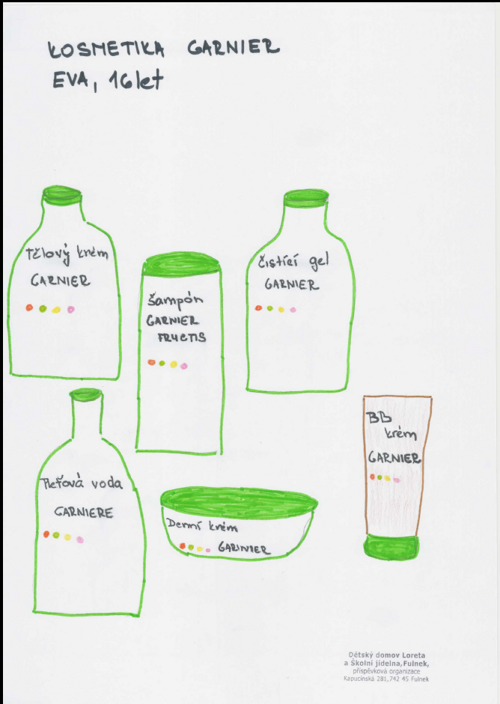 KOSMETIKA GARNIER
EVA, 16 let
Tělový krém
GARNIER
čistící gel
GARNIER
šampón
GARNIER
FRUCTIS
BB
krém
GARNIER
Pleťová voda
GARNIERE
Denní krém
GARNIER
Dětský domov Loreta
a Školní jídelna, Fulnek,
příspěvková organizace
Kapucínská 281, 742 45 Fulnek